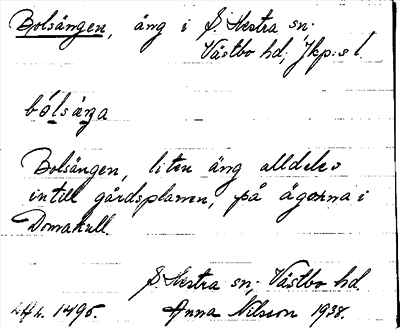 Bolsängen, äng i S. Hestra sn.
Västbo hd, Jkp:s l.
bo̗lsäŋa
Bolsängen, liten äng alldeles
intill gårdsplanen, på ägorna i
Domakull.
S. Hestra sn, Västbo hd.
1495. Anna Nilsson 1938.